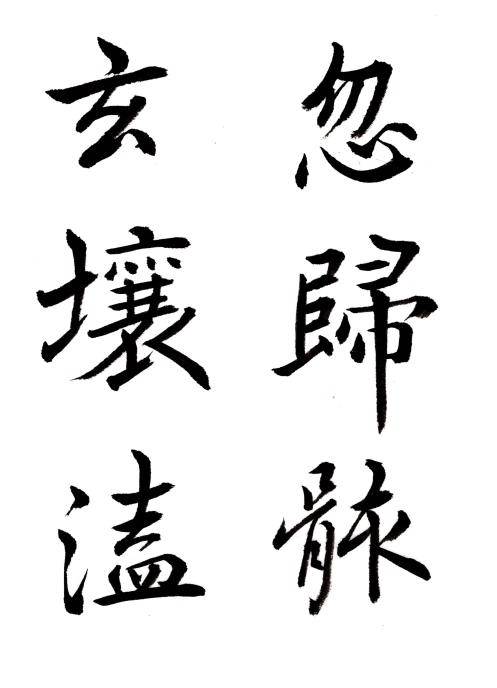 忽歸骸
玄壤溘